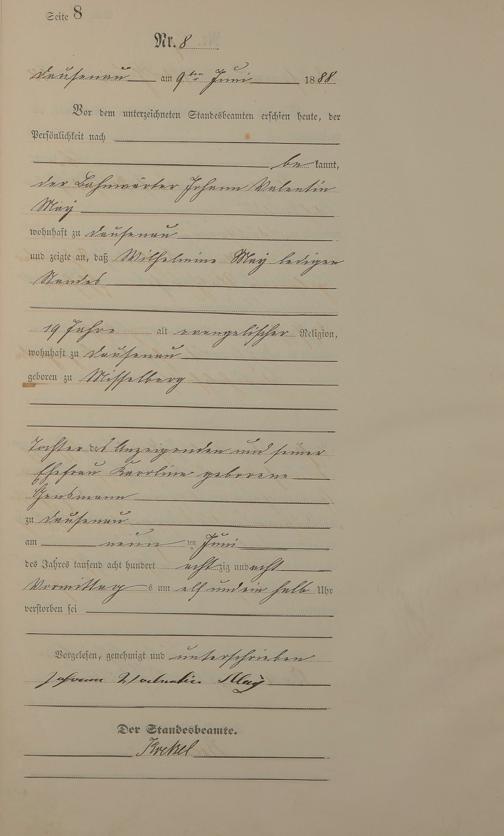 Seite 8
Nr. 8
Dausenau am 9ten Juni 1888
Vor dem unterzeichneten Standesbeamten erschien heute, der
Persönlichkeit nach
bekannt,
der Bahnwärter Johann Valentin
May
wohnhaft zu Dausenau
und zeigte an, daß Wilhelmine May ledigen
Standes
19 Jahre alt evangelischer Religion,
wohnhaft zu Dausenau
geboren zu Misselberg
Tochter des Anzeigenden und seiner
Ehefrau Karoline geborene
zu Dausenau
am neun ten Juni
des Jahres tausend acht hundert achtzig und acht
Vormittags um elf und ein halb Uhr
verstorben sei
Vorgelesen, genehmigt und unterschrieben
Johann Valentin May
Der Standesbeamte.
Krekel